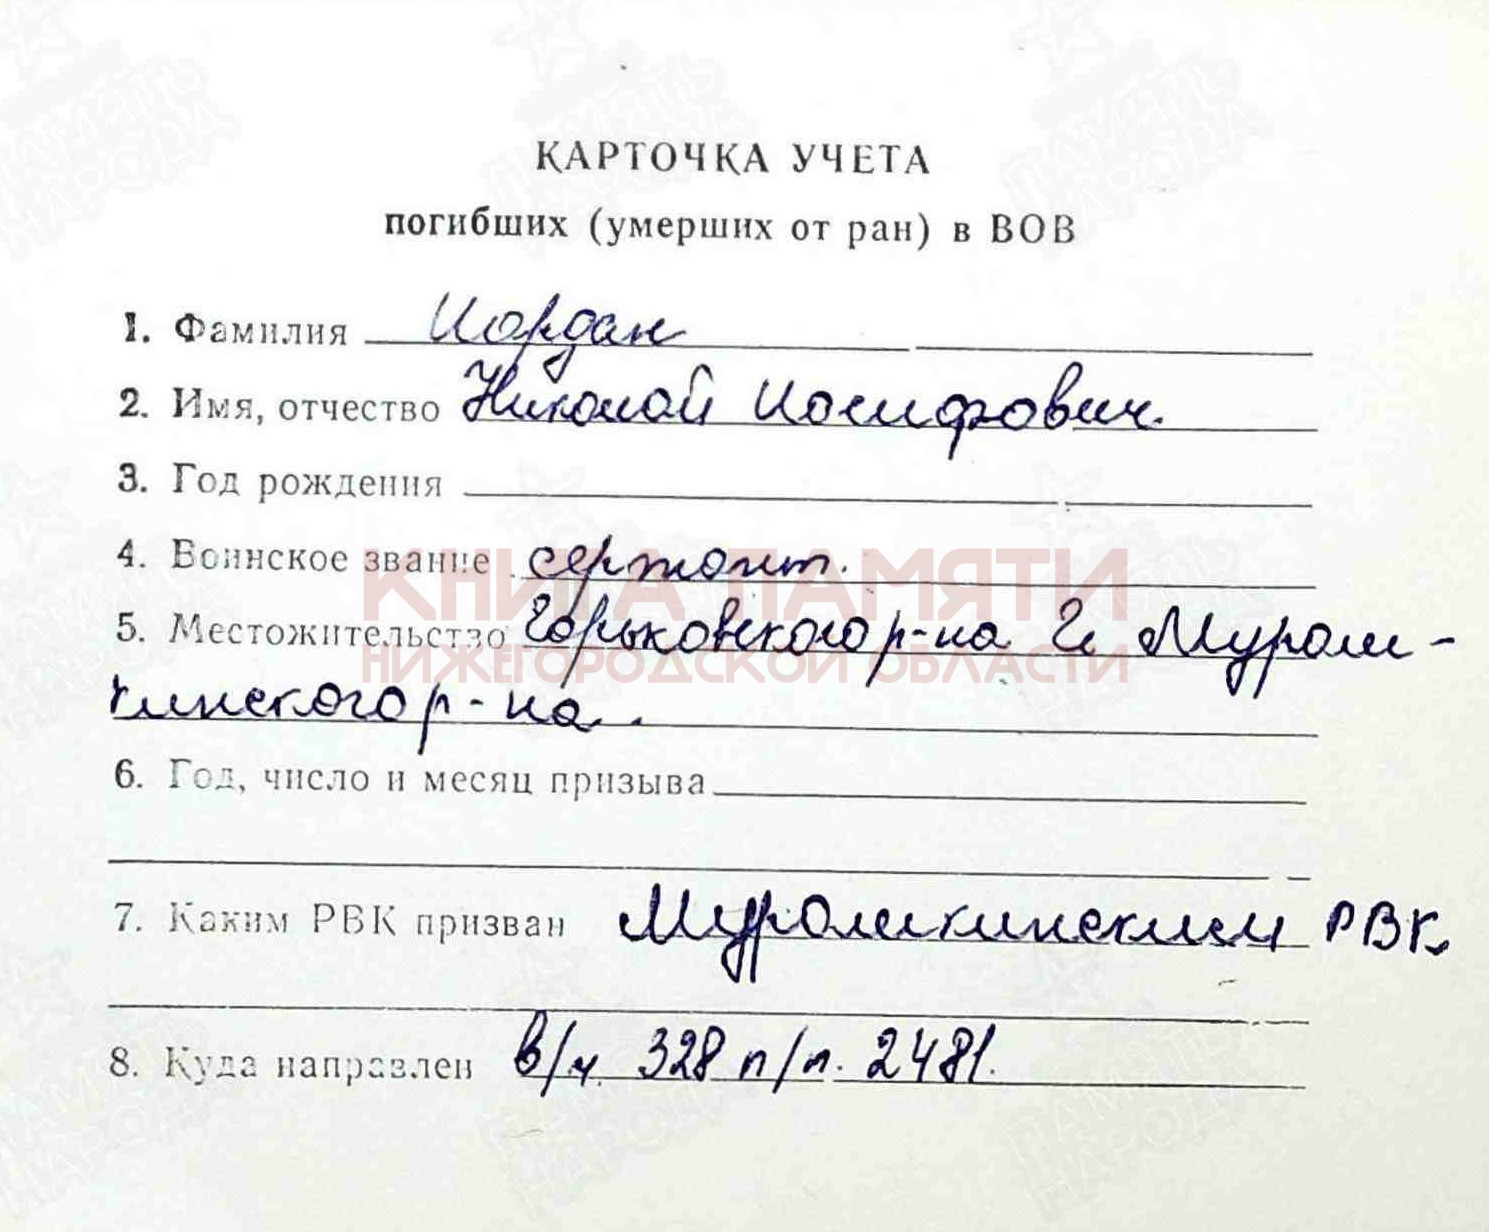 КАРТОЧКА УЧЕТА
погибших (умерших от ран) в ВОВ
1. Фамилия Иордан
2. Имя, отчество Николай Иосифович.
3. Год рождения
4. Воинское звание сержант.
КНИГА ПАМЯТИ
5. Местожительство Горьковского р-на Муром-
НИЖЕГОРОДСКОЙ ОБЛАСТИ
кинского р-на.
6. Год, число и месяц призыва
7. Каким РВК призван Муромкинским РВК.
8. Куда направлен в/ч 328 п/п. 2481.